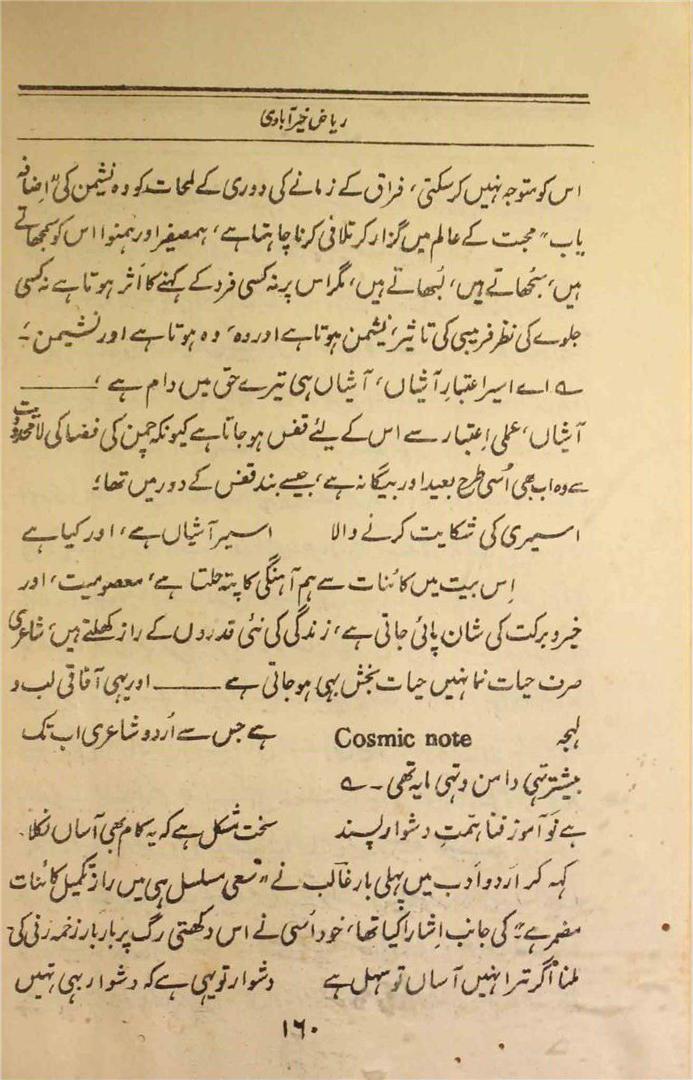 ریاض خیرآبادی
اس کو متوجہ نہیں کر سکتی، فراق کے زمانے کی دوری کے لمحات کو وہ نشیمن کی "اضافہ
یاب" محبت کے عالم میں گزار کر تلافی کرنا چاہتا ہے، ہمصفیر اور ہمنوا اس کو سمجھاتے
ہیں، سُجھاتے ہیں، لُبھاتے ہیں، مگر اس پر نہ کسی فرد کے کہنے کا اثر ہوتا ہے نہ کسی
جلوے کی نظر فریبی کی تاثیر، نشیمن ہوتا ہے اور وہ، وہ ہوتا ہے اور نشیمن ۔
؎ اے اسیر اعتبارِ آشیاں، آشیاں ہی تیرے حق میں دام ہے ، ——
آشیاں، عملی اِعتبار سے اس کے لیٔے قفس ہو جاتا ہے کیونکہ چمن کی فضا کی لامحدودیت
سے وہ اب بھی اُسی طرح بعید اور بیگانہ ہے، جیسے بند قفس کے دور میں تھا؛
اسیری کی شکایت کرنے والا اسیر آشیاں ہے، اور کیا ہے
اِس بیت میں کائنات سے ہم آہنگی کا پتہ چلتا ہے، معصومیت، اور
خیر و برکت کی شان پائی جاتی ہے، زندگی کی نئی قدروں کے راز کھلتے ہیں، شاعری
صرف حیات نما نہیں حیات بخش بھی ہو جاتی ہے —— اور یہی آفاقی لب و
لہجہ Cosmic note ہے جس سے اُردو شاعری اب تک
بیشتر تہی دامن و تہی مایہ تھی ۔ ؎
ہے نو آموز فنا ہمّتِ دشوار پسند سخت مشکل ہے کہ یہ کام بھی آساں نکلا۔
کہہ کر اردو ادب میں پہلی بار غالب نے "سعیِ مسلسل ہی میں رازِ تکمیلِ کائنات
مضمر ہے" کی جانب اِشارا کیا تھا، خود اُسی نے اس دکھتی رگ پر بار بار زخمہ زنی کی
ملنا اگر ترا نہیں آساں تو سہل ہے دشوار تو یہی ہے کہ دشوار بھی نہیں
۱۶۰